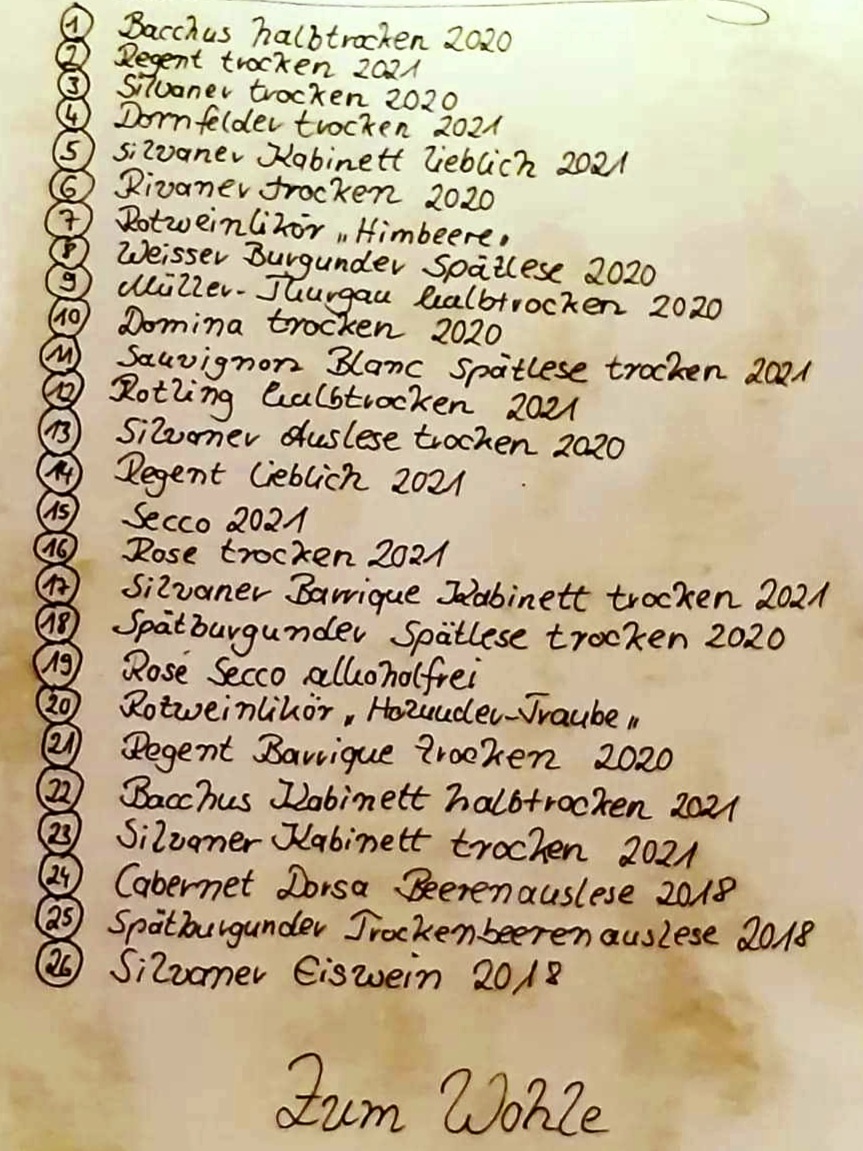 1 Bacchus halbtrocken 2020
2 Regent trocken 2021
3 Silvaner trocken 2020
4 Dornfelder trocken 2021
5 Silvaner Kabinett lieblich 2021
6 Rivaner trocken 2020
7 Rotweinlikör „Himbeere"
8 Weisser Burgunder Spätlese 2020
9 Müller-Thurgau halbtrocken 2020
10 Domina trocken 2020
11 Sauvignon Blanc Spätlese trocken 2021
12 Rotling halbtrocken 2021
13 Silvaner Auslese trocken 2020
14 Regent lieblich 2021
15 Secco 2021
16 Rose trocken 2021
17 Silvaner Barrique Kabinett trocken 2021
18 Spätburgunder Spätlese trocken 2020
19 Rosé Secco alkoholfrei
20 Rotweinlikör „Holunder-Traube"
21 Regent Barrique trocken 2020
22 Bacchus Kabinett halbtrocken 2021
23 Silvaner Kabinett trocken 2021
24 Cabernet Dorsa Beerenauslese 2018
25 Spätburgunder Trockenbeerenauslese 2018
26 Silvaner Eiswein 2018
Zum Wohle